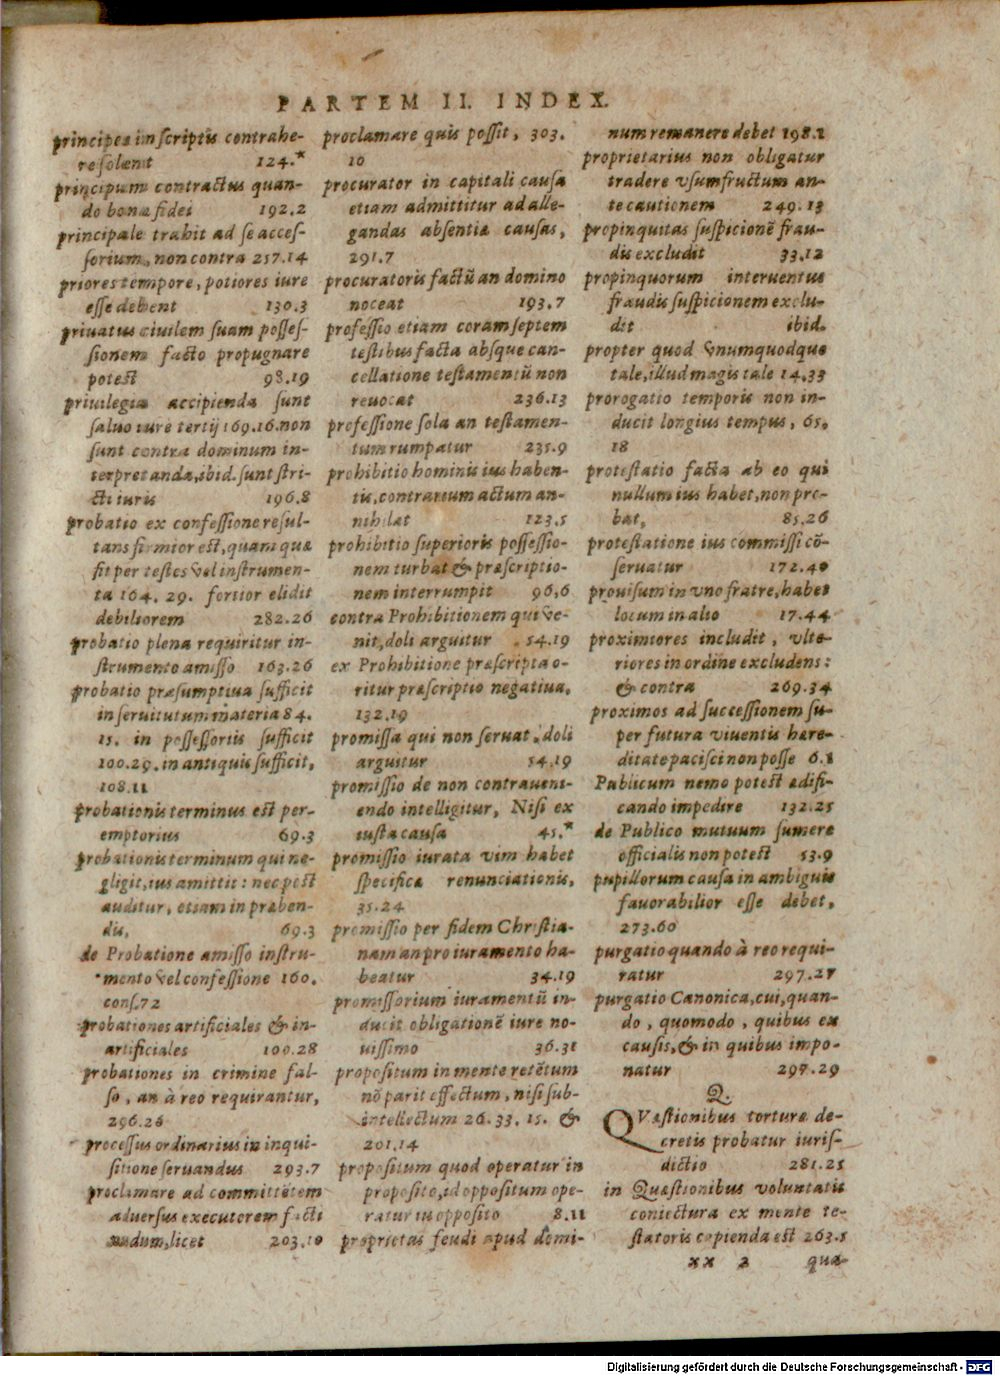 PARTEM II. INDEX.
principes in scriptis contrahe-
re solent 124.*
principium contractus quan-
do bonæ fidei 192.2
principale trahit ad se acceſ-
ſorium, non contra 257.14
priores tempore, potiores iure
eſſe debent 130.3
priuatus ciuilem suam poſſeſ-
ſionem facto propugnare
poteſt 98.19
priuilegia accipienda ſunt
ſaluo iure tertij 169.16. non
ſunt contra dominum in-
terpretanda, ibid. ſunt ſtri-
cti iuris 196.8
probatio ex confeſſione reſul-
tans firmior eſt, quam quæ
fit per teſtes vel inſtrumen-
ta 164. 29. fortior elidit
debiliorem 282.26
probatio plena requiritur in-
ſtrumento amiſſo 163.26
probatio præſumptiua ſufficit
in ſeruitutum materia 84.
15. in poſſeſſoriis ſufficit
100.29. in antiquis ſufficit,
108.11
probationis terminus est per-
emptorius 69.3
probationis terminum qui ne-
gligit, ius amittit: nec poſt
auditur, etiam in præben-
dis, 69.3
de Probatione amiſſo inſtru-
mento vel confeſſione 160.
conſ. 72
probationes artificiales & in-
artificiales 100.28
probationes in crimine fal-
ſo, an à reo requirantur,
296.26
proceſſus ordinarius in inqui-
ſitione ſeruandus 293.7
proclamare ad committẽtem
aduerſus executorem facti
nudum, licet 203.10
proclamare quis poſſit, 303.
10
procurator in capitali cauſa
etiam admittitur ad alle-
gandas abſentiæ cauſas,
291.7
procuratoris factũ an domino
noceat 193.7
profeſſio etiam coram ſeptem
teſtibus facta abſque can-
cellatione teſtamentũ non
reuocat 236.13
profeſſione ſola an teſtamen-
tum rumpatur 235.9
prohibitio hominis ius haben-
tis, contrarium actum an-
nihilat 123.5
prohibitio ſuperioris poſſeſſio-
nem turbat & præſcriptio-
nem interrumpit 96,6
contra Prohibitionem qui ve-
nit, doli arguitur 54.19
ex Prohibitione præſcripta o-
ritur præſcriptio negatiua,
132.19
promiſſa qui non ſeruat, doli
arguitur 54.19
promiſſio de non contraueni-
endo intelligitur, Niſi ex
iuſta cauſa 45.*
promiſſio iurata vim habet
ſpecificæ renunciationis,
35.24
promiſſio per fidem Chriſtia-
nam an pro iuramento ha-
beatur 34.19
promiſſorium iuramentũ in-
ducit obligationẽ iure no-
uiſſimo 36.31
propoſitum in mente retẽtum
nõ parit effectum, niſi ſub-
intellectum 26.33. 15. &
201.14
propoſitum quod operatur in
propoſito, id oppoſitum ope-
ratur in oppoſito 8.11
proprietas feudi apud domi-
num remanere debet 198.1
proprietarius non obligatur
tradere vſumfructum an-
te cautionem 249.13
propinquitas ſuſpicionẽ frau-
dis excludit 33.12
propinquorum interuentus
fraudis ſuſpicionem exclu-
dit ibid.
propter quod vnumquodque
tale, illud magis tale 14.33
prorogatio temporis non in-
ducit longius tempus, 65.
18
proteſtatio facta ab eo qui
nullum ius habet, non pro-
bat, 85.26
proteſtatione ius commiſſi cõ-
ſeruatur 172.40
prouiſum in vno fratre, habet
locum in alio 17.44
proximiores includit, vlte-
riores in ordine excludens:
& contra 269.34
proximos ad ſucceſſionem ſu-
per futura viuentis hære-
ditate paciſci non poſſe 6.1
Publicum nemo poteſt ædifi-
cando impedire 132.25
de Publico mutuum ſumere
officialis non poteſt 53.9
pupillorum cauſa in ambiguis
fauorabilior eſſe debet,
273.60
purgatio quando à reo requi-
ratur 297.27
purgatio Canonica, cui, quan-
do, quomodo, quibus ex
cauſis, & in quibus impo-
natur 297.29
Q.
QVæſtionibus torturæ de-
cretis probatur iuriſ-
dictio 281.25
in Quæſtionibus voluntatis
coniectura ex mente te-
ſtatoris capienda eſt 263.5
xx 2 quæ-
Digitalisierung gefördert durch die Deutsche Forschungsgemeinschaft - DFG